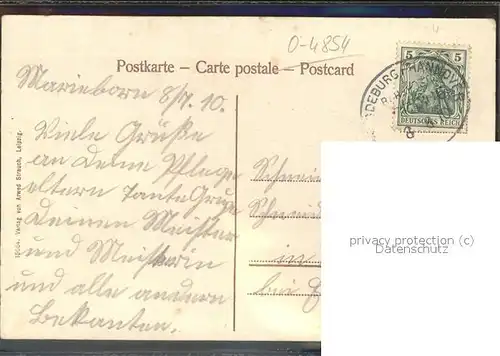 0-4854
Postkarte – Carte postale – Postcard
5 5
DEUTSCHES REICH
DEBURG HANNOV
8
Marieborn 8/7. 10.
Viele Grüße
an Deine Pflege
eltern Tante
Deinen Meister
und Meisterin
und alle andern
Bekanten.
in
bei
Verlag von Arend Strauch, Leipzig.
privacy protection (c)
Datenschutz